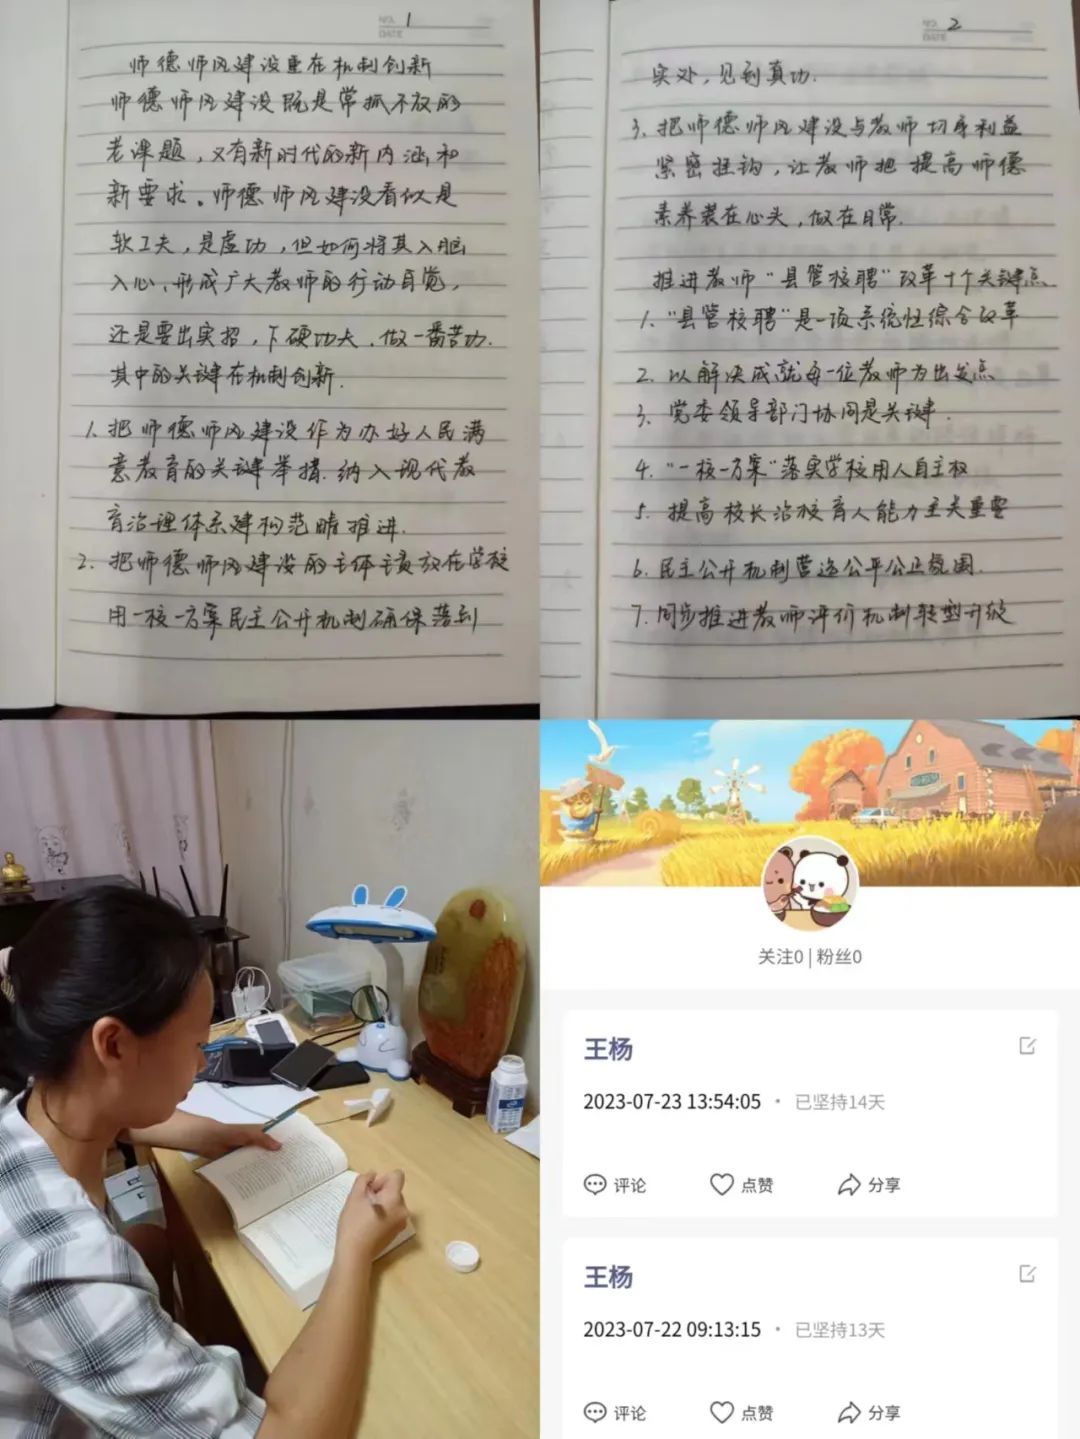 NO. 1
DATE
师德师风建设重在机制创新
师德师风建设既是常抓不放的
老课题，又有新时代的新内涵和
新要求。师德师风建设看似是
软工夫，是虚功，但如何将其入脑
入心、形成广大教师的行动自觉，
还是要出实招，下硬功夫，做一番苦功.
其中的关键在机制创新.
1. 把师德师风建设作为办好人民满
意教育的关键举措.纳入现代教
育治理体系建构范畴推进.
2. 把师德师风建设的主体责放在学校
用一校一方案民主公开机制确保落到
NO. 2
DATE
实处，见到真功.
3. 把师德师风建设与教师切身利益
紧密挂钩，让教师把提高师德
素养装在心头，做在日常.
推进教师“县管校聘”改革十个关键点
1. “县管校聘”是一项系统性综合改革
2. 以解决成就每一位教师为出发点
3. 党委领导部门协同是关键.
4. “一校一方案”落实学校用人自主权
5. 提高校长治校育人能力至关重要
6. 民主公开机制营造公平公正氛围.
7. 同步推进教师评价机制转型升级
关注0 | 粉丝0
王杨
2023-07-23 13:54:05 · 已坚持14天
评论 点赞 分享
王杨
2023-07-22 09:13:15 · 已坚持13天
评论 点赞 分享